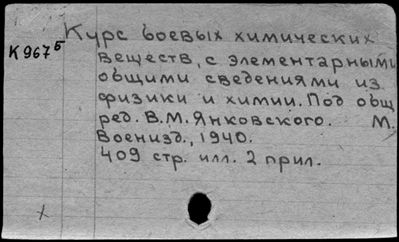 Курс боевых химических
К 967б веществ, с элементарными
общими сведениями из
физики и химии. Под общ
ред. В.М. Янковского. М.
Воениздат., 1940.
409 стр. илл. 2 прил.
х